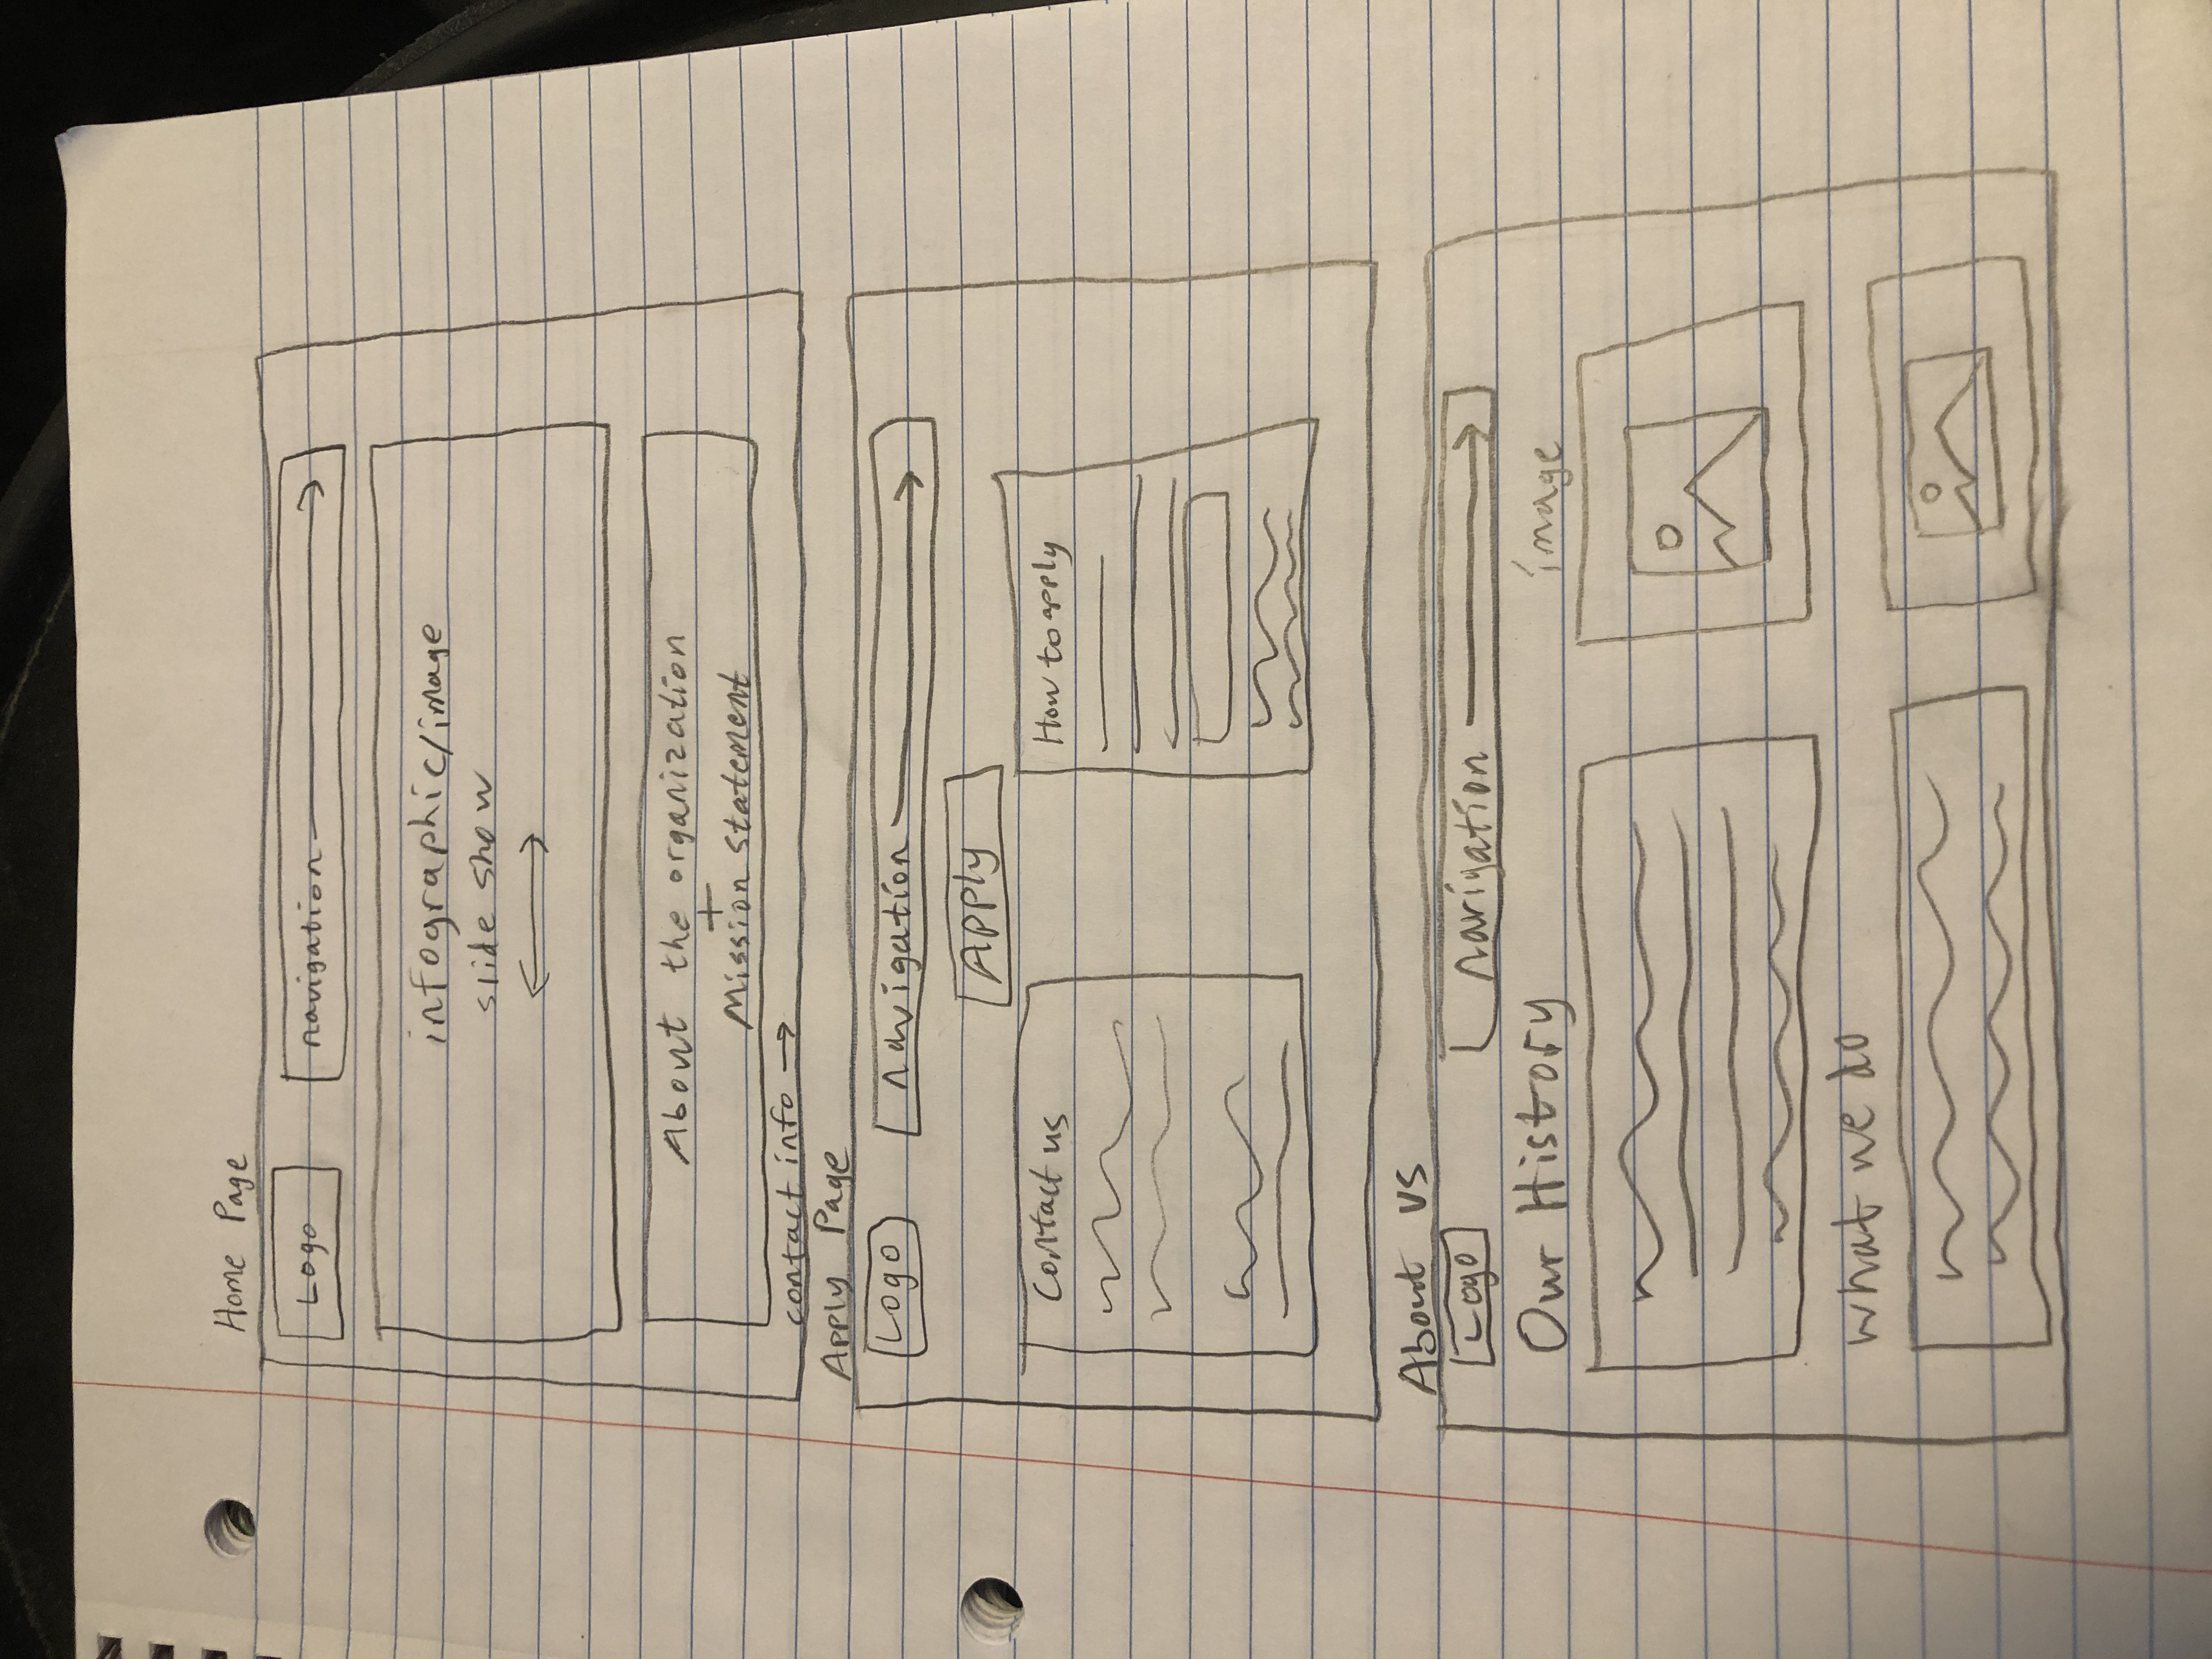 Home Page
Logo
navigation
infographic/image
slide show
About the organization
+
Mission Statement
contact info →
Apply Page
Logo
navigation
Apply
Contact us
How to apply
About US
Logo
Navigation
Our History
image
what we do